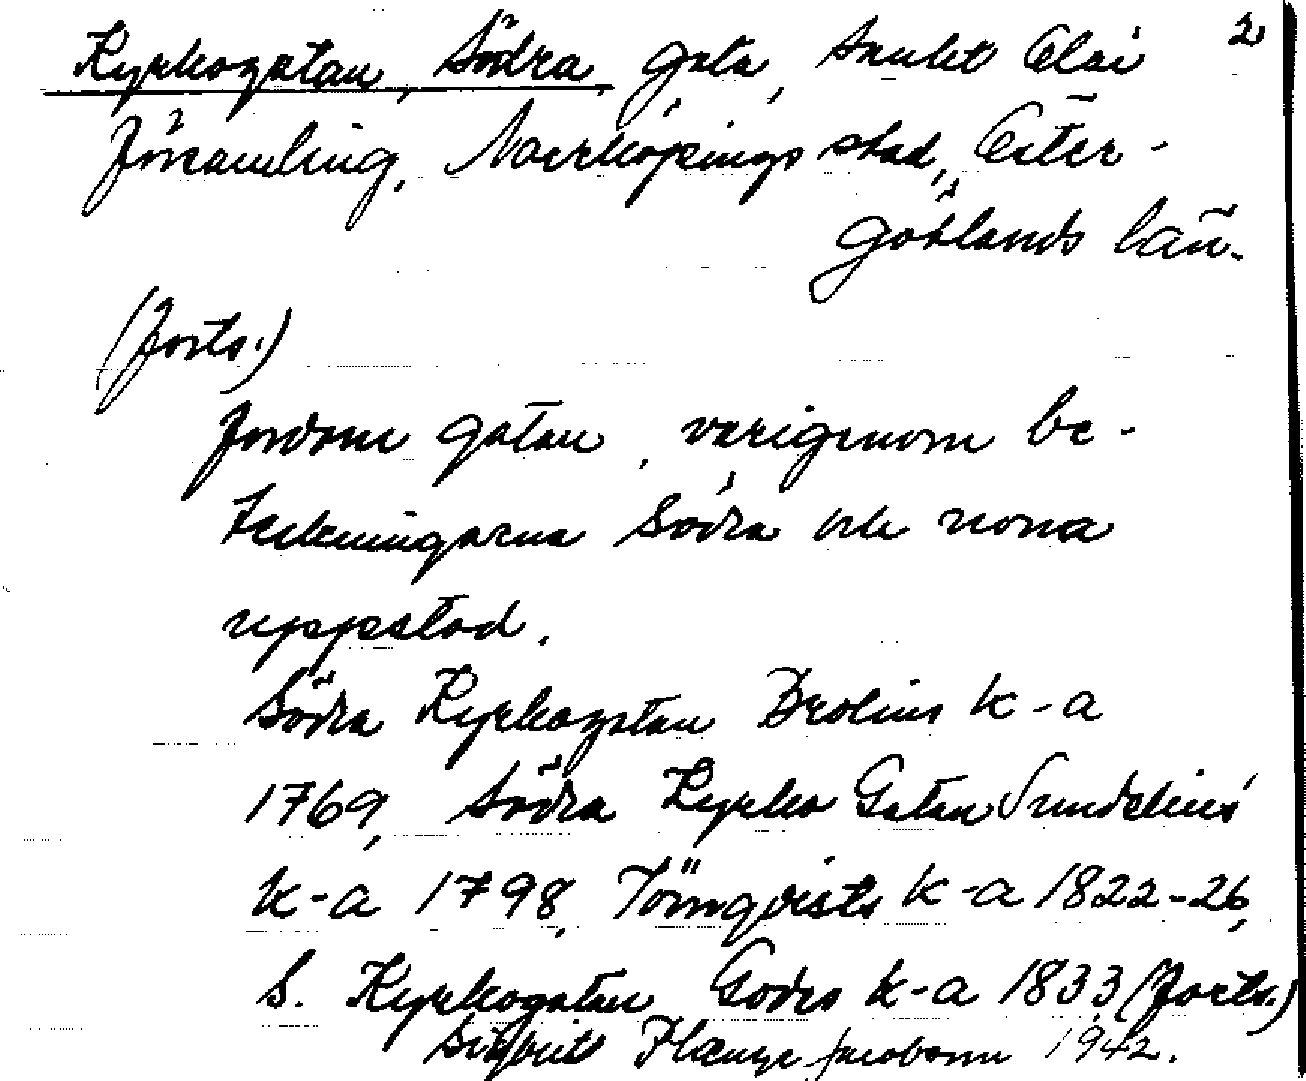 Kyrkogatan, Södra, gata, Sankt Olai 2
församling, Norrköpings stad, Öster-
götlands län.
(forts.)
fordom gatan, varigenom be-
teckningarna Södra och norra
uppstod.
Södra Kyrkogatan Brolins k-a
1769, Södra Kyrko Gatan Sundelius'
k-a 1798, Törnqvists k-a 1822-26,
S. Kyrkogatan Godes k-a 1833 (forts.)
1942.